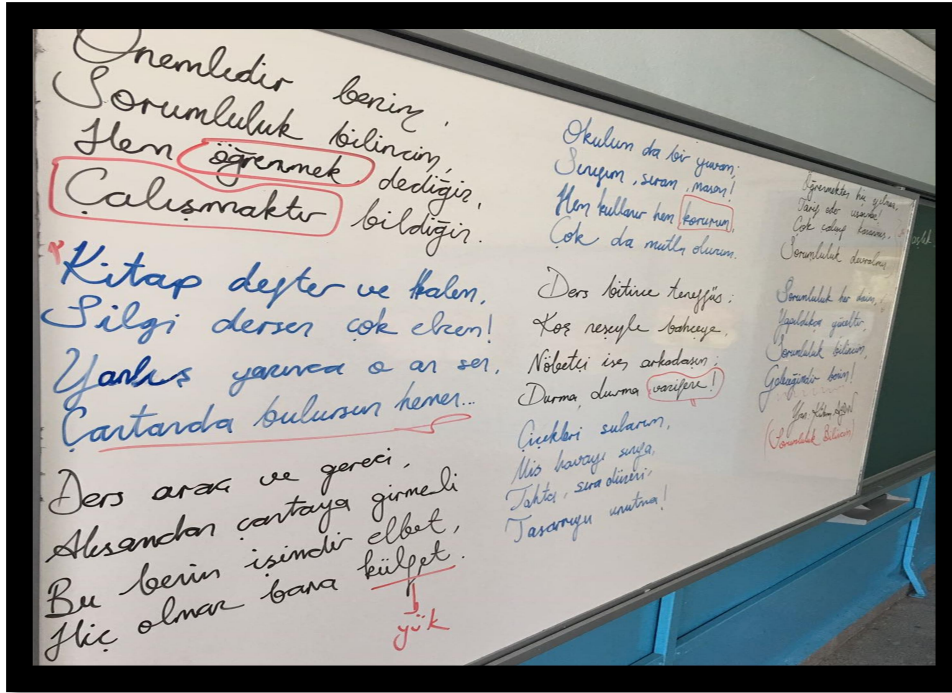 Önemlidir benim,
Sorumluluk bilincim,
Hem öğrenmek dediğin,
Çalışmaktır bildiğin.
Kitap defter ve kalem,
Silgi dersen çok elzem!
Yanlış yazınca o an sen,
Çantanda bulursun hemen...
Ders aracı ve gereci,
Akşamdan çantaya girmeli
Bu benim işimdir elbet,
Hiç olmaz bana külfet.
yük
Okulum da bir yuvam;
Sınıfım, sıram, masam!
Hem kullanır hem korurum,
Çok da mutlu olurum.
Ders bitince teneffüs;
Koş neşeyle bahçeye,
Nöbetçi ise arkadaşın;
Durma, durma vazifene!
Çiçekleri sularım,
Mis havayı
Tahta, sıra düzeni,
Tasarrufu unutma!
Öğrenmekten hiç yılmaz
Çok çalışıp kazanırız.
Sorumluluk
Sorumluluk her
Yapıldıkça güzeldir
Sorumluluk bilincim,
Geleceğimdir benim!
(Sorumluluk Bilincim)